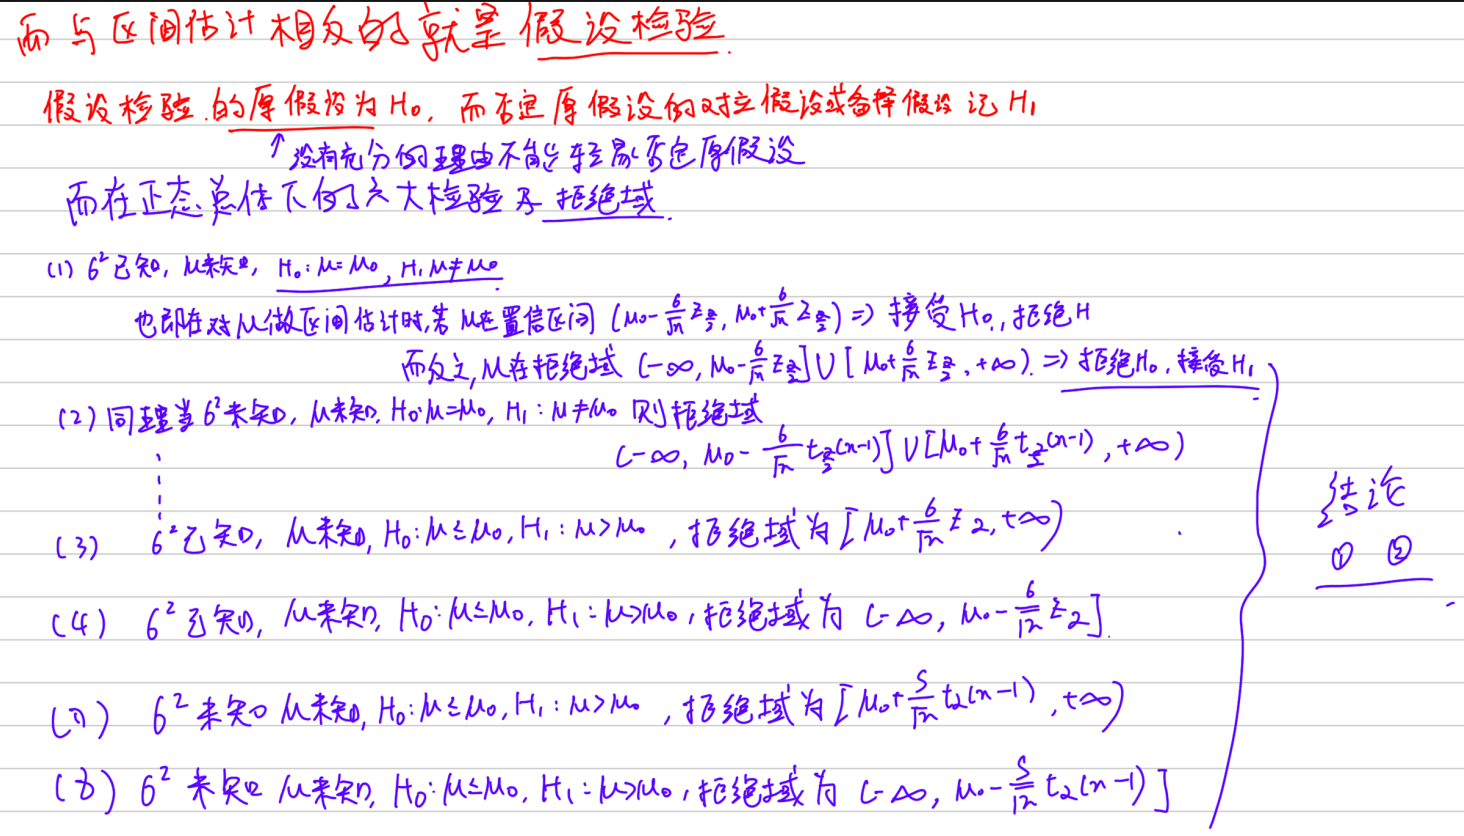 而与区间估计相反的就是假设检验.
假设检验.的原假设为H₀, 而否定原假设的对立假设或备择假设 记H₁
↑没有充分的理由不能轻易否定原假设
而在正态总体下的六大检验及拒绝域.
(1) 6²已知, μ未知, H₀:μ=μ₀, H₁ μ≠μ₀
也即在对μ做区间估计时,若μ在置信区间 (μ₀-6/√n z_{α/2}, μ₀+6/√n z_{α/2}) => 接受H₀, 拒绝H
而反之, μ在拒绝域 (-∞, μ₀-6/√n z_{α/2}]∪[μ₀+6/√n z_{α/2}, +∞). => 拒绝H₀, 接受H₁
(2) 同理当6²未知, μ未知, H₀:μ=μ₀, H₁:μ≠μ₀ 则拒绝域
(-∞, μ₀-6/√n t_{α/2}(n-1)]∪[μ₀+6/√n t_{α/2}(n-1), +∞)
(3) 6²已知, μ未知, H₀:μ≤μ₀, H₁:μ>μ₀, 拒绝域为[μ₀+6/√n z_α, +∞)
结论
① ②
(4) 6²已知, μ未知, H₀:μ≤μ₀, H₁:μ>μ₀, 拒绝域为 (-∞, μ₀-6/√n z_α].
6²未知 μ未知, H₀:μ≤μ₀, H₁:μ>μ₀, 拒绝域为[μ₀+S/√n t_α(n-1), +∞)
6² 未知 μ未知, H₀:μ≤μ₀, H₁:μ>μ₀, 拒绝域为 (-∞, μ₀-S/√n t_α(n-1)]